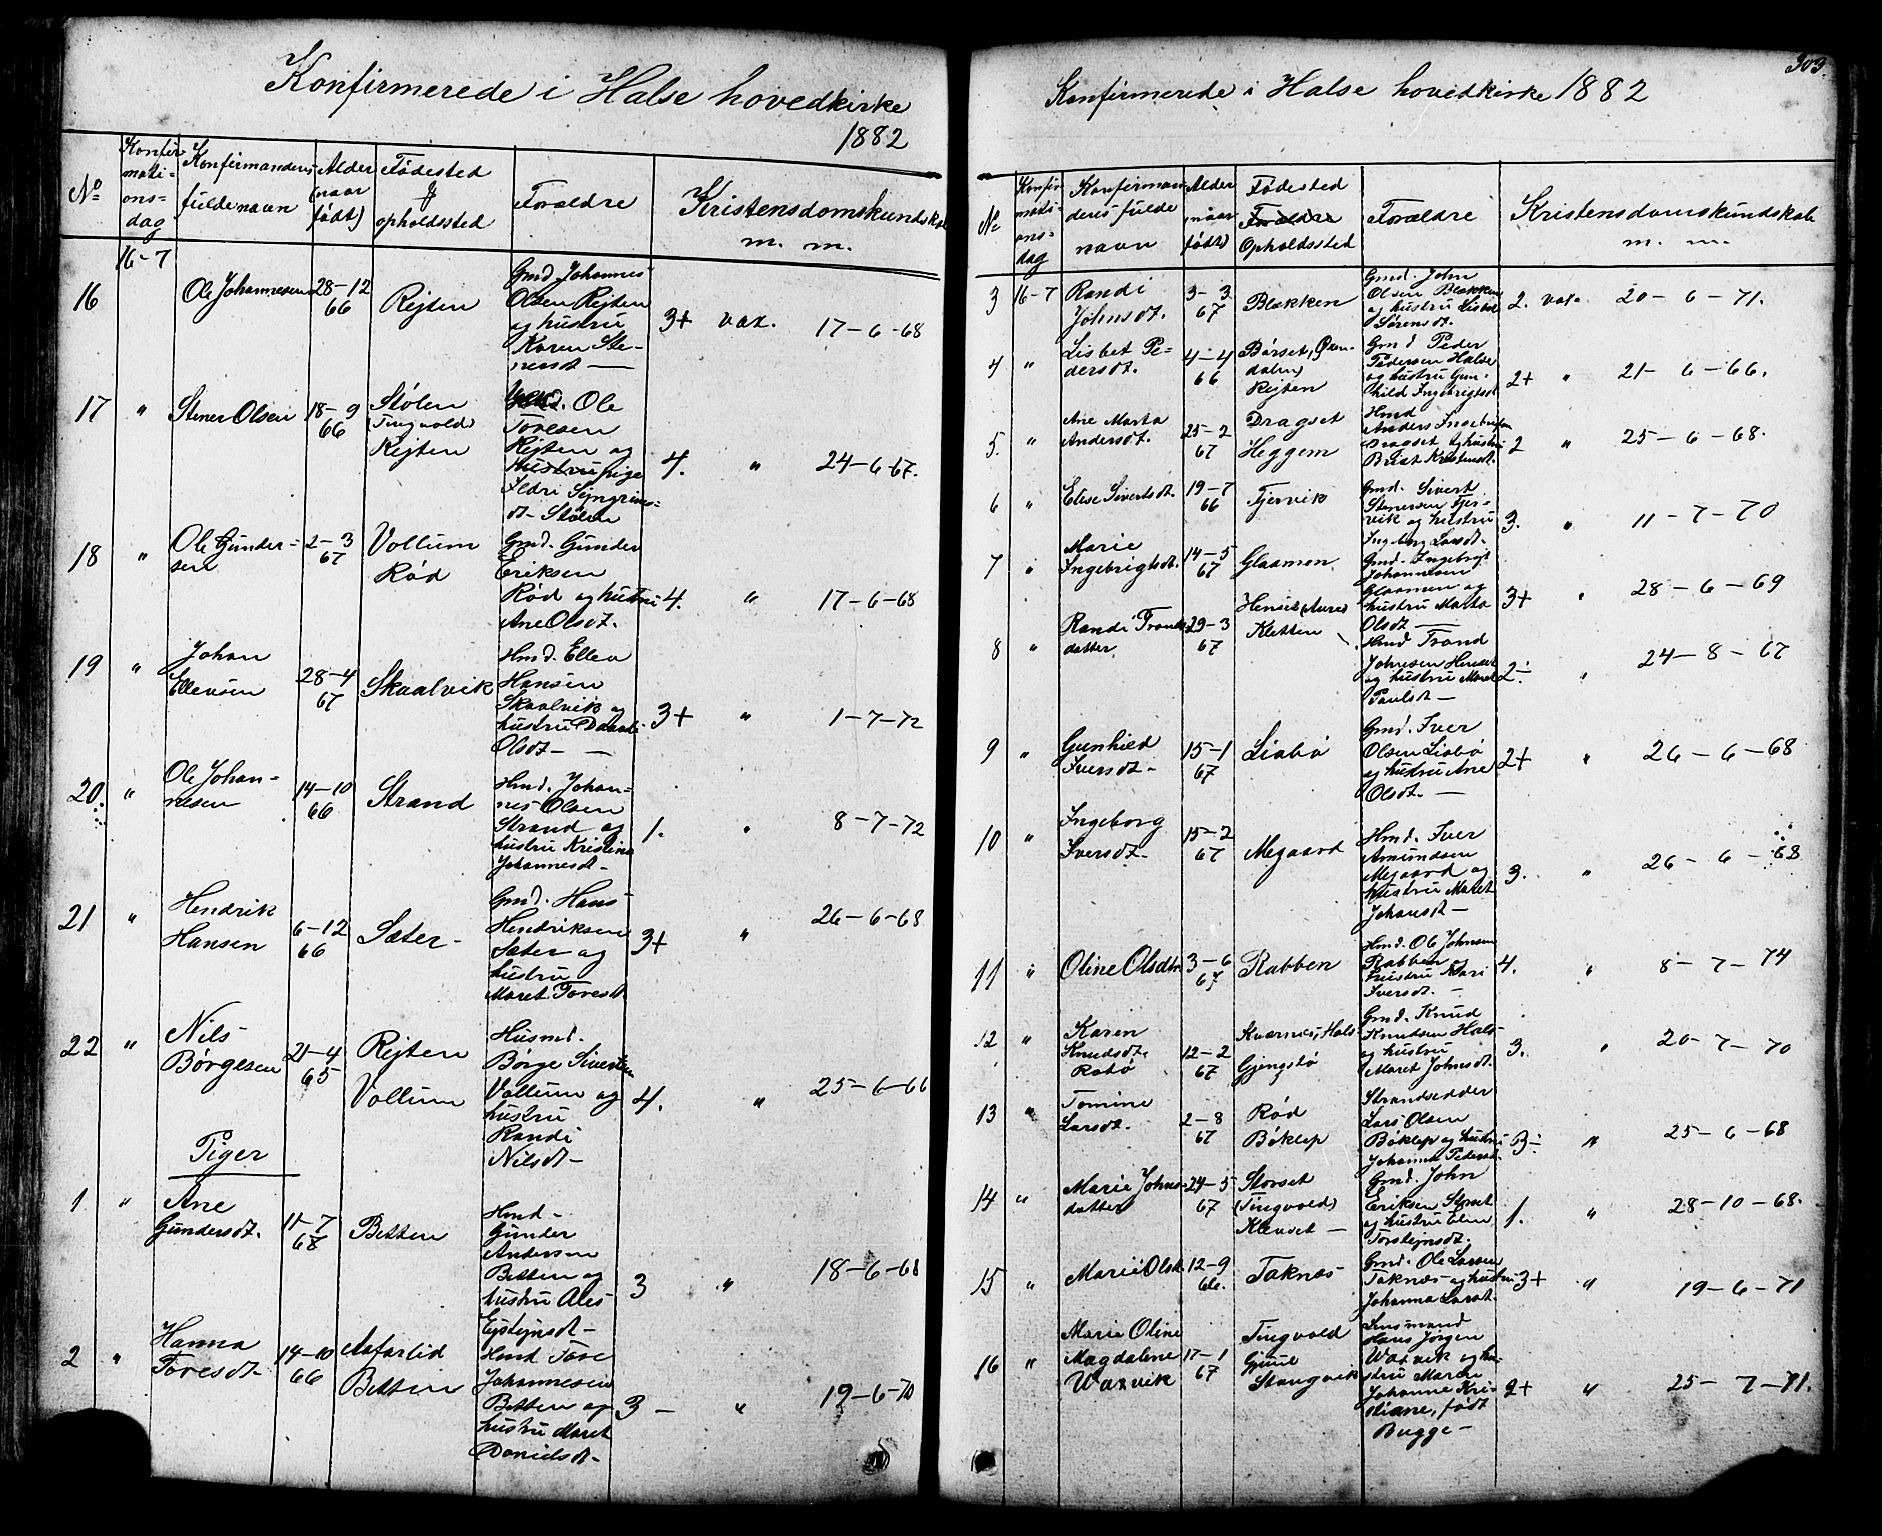 Konfirmerede i Halse hovedkirke
1882
No
Konfir
mati-
ons-
dag
Konfirmandens
fulde navn
Alder
(naar
født)
Fødested
&
opholdssted
Forældre
Kristensdomskundskab
m. m.
16-7
16
Ole Johannesen
28-12
66
Rejten
Gmd. Johannes
Olsen Rejten
og hustru
Karen Ste-
nersdt -
3+ vax. 17-6-68
17 " Stener Olsen
18-9
66
Stølen
(Tingvold)
Rejten
Ole
Toresen
Rejten og
pige
Ildri
dt. Stølen
4. " 24-6-67.
18 "
Ole Gunder-
sen
2-3
67
Vollum
Rød
Gmd. Gunder
Eriksen
Rød og hustru
Ane Olsdt.
4. " 17-6-68
19 "
Johan
Ellevsen
28-4
67
Skaalvik
Hmd. Ellev
Hansen
Skaalvik og
hustru
Olsdt -
3+ " 1-7-72
20 "
Ole Johan-
nesen
14-10
66
Strand
Hmd. Johan-
nes Olsen
Strand og
hustru Kristine
Johannesdt -
1. " 8-7-72
21 "
Hendrik
Hansen
6-12
66
Sæter -
Gmd. Hans
Hendriksen
Sæter og
hustru
Maret Toresdt
3+ " 26-6-68
22 "
Nils
Børgesen
21-4
65
Rejten
Vollum
Husmd.
Børge Sivertsen
Vollum og
hustru
Randi
Nilsdt -
4. " 25-6-66
Piger
1 "
Ane
Gundersdt.
11-7
68
Betten
Hmd -
Gunder
Andersen
Betten og
hustru Ales
Ejstejnsdt -
3 " 18-6-68
2 "
Hanna
Toresdt -
14-10
66
Aafarlid
Betten
Hmd Tore
Johannesen
Betten og
hustru Maret
Danielsdt -
3 - " 19-6-70
303.
Konfirmerede i Halse hovedkirke 1882
No
Konfir
mati-
ons-
dag
Konfirman-
dens fulde
navn
Alder
(naar
født)
Fødested
Forældre
Opholdssted
Forældre
Kristensdomskundskab
m. m.
3 16-7
Randi
Johnsdt.
3-3
67
Blekken
Gmd. John
Olsen Blekken
og hustru Lisbet
Sørensdt.
2. vax. 20-6-71.
4 "
Lisbet Pe-
dersdt.
4-4
66
Børset,
dalen)
Rejten
Gmd Peder
Pedersen Halse
og hustru Gun-
hild Ingebrigtsdt
2+ " 21-6-66.
5. "
Ane Marta
Andersdt.
25-2
67
Dragset
Heggem
Hmd
Anders Ingebrigtsen
Dragset og hustru
Brit
2 " 25-6-68.
6 " Elise Sivertsdt.
19-7
66
Fjervik
Gmd. Sivert
Stenersen Fjer-
vik og hustru
Ingeborg Larsdt.
3. " 11-7-70
7 "
Marie
Ingebrigtsdt.
14-5
67
Glaamen
Gmd. Ingebrigt
Johannesen
Glaamen og
hustru Marta
Olsdt -
3+ " 28-6-69
8 "
Randi Trond-
datter
29-3
67
Henset (Aure)
Kletten
Hmd Trond
Johnsen Henset
og hustru Maret
Paulsdt -
2- " 24-8-67
9 "
Gunhild
Iversdt -
15-1
67
Liabø
Gmd. Iver
Olsen Liabø
og hustru Ane
Olsdt. -
2+ " 26-6-68
10 "
Ingeborg
Iversdt -
15-2
67
Megaard
Hmd. Iver
Amundsen
Megaard og
hustru Maret
Johansdt -
3. " 26-6-68
11 " Oline Olsdtr
3-6
67
Rabben
Hmd. Ole Johnsen
Rabben og
hustru Mari
Iversdt. -
4. " 8-7-74
12 "
Karen
Knudsdt.
Rotø
12-2
67
Kværnes, Hals
Gjengstø
Gmd. Knud
Knudsen Hals
og hustru
Maret Johnsdt.
3. " 20-7-70
13 "
Tomine
Larsdt.
2-8
67
Rød
Bøklep
Strandsidder
Lars Olsen
Bøklep og hustru
Johanna Pedersdt
3- " 25-6-68
14 "
Marie Johns-
datter
24-5
67
Storset
(Tingvold)
Klevset -
Gmd. John
Eriksen Storset
og hustru Elen
Torstejnsdt.
1. " 28-10-68.
15 " Marie Olsdt
12-9
66.
Taknes
Gmd. Ole Larsen
Taknes og hustru
Johanna Larsdt.
3+ " 19-6-71
16 "
Marie Oline
Magdalene
Waxvik
17-1
67
Tingvold
Gjuul
Stangvik
Lensmand
Hans Jørgen
Waxvik og hu-
stru Maren
Johanne Kri-
stiane, født
Bugge -
2+ " 25-7-71.